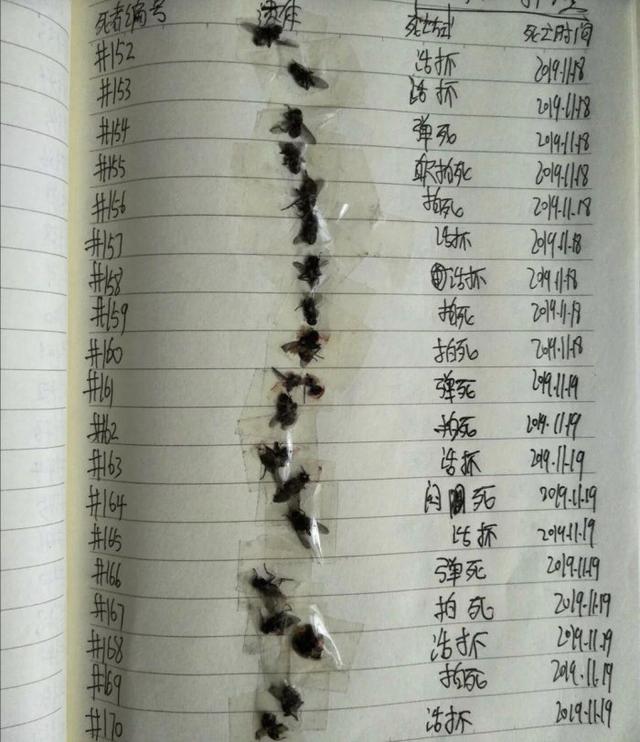 死者编号 遗体 死亡方式 死亡时间
#152 活抓 2019.11.18
#153 活抓 2019.11.18
#154 弹死 2019.11.18
#155 拍死 2019.11.18
#156 拍死 2019.11.18
#157 活抓 2019.11.18
#158 活抓 2019.11.18
#159 拍死 2019.11.18
#160 拍死 2019.11.18
#161 弹死 2019.11.19
#162 拍死 2019.11.19
#163 活抓 2019.11.19
#164 闷死 2019.11.19
#165 活抓 2019.11.19
#166 弹死 2019.11.19
#167 拍死 2019.11.19
#168 活抓 2019.11.19
#169 拍死 2019.11.19
#170 活抓 2019.11.19